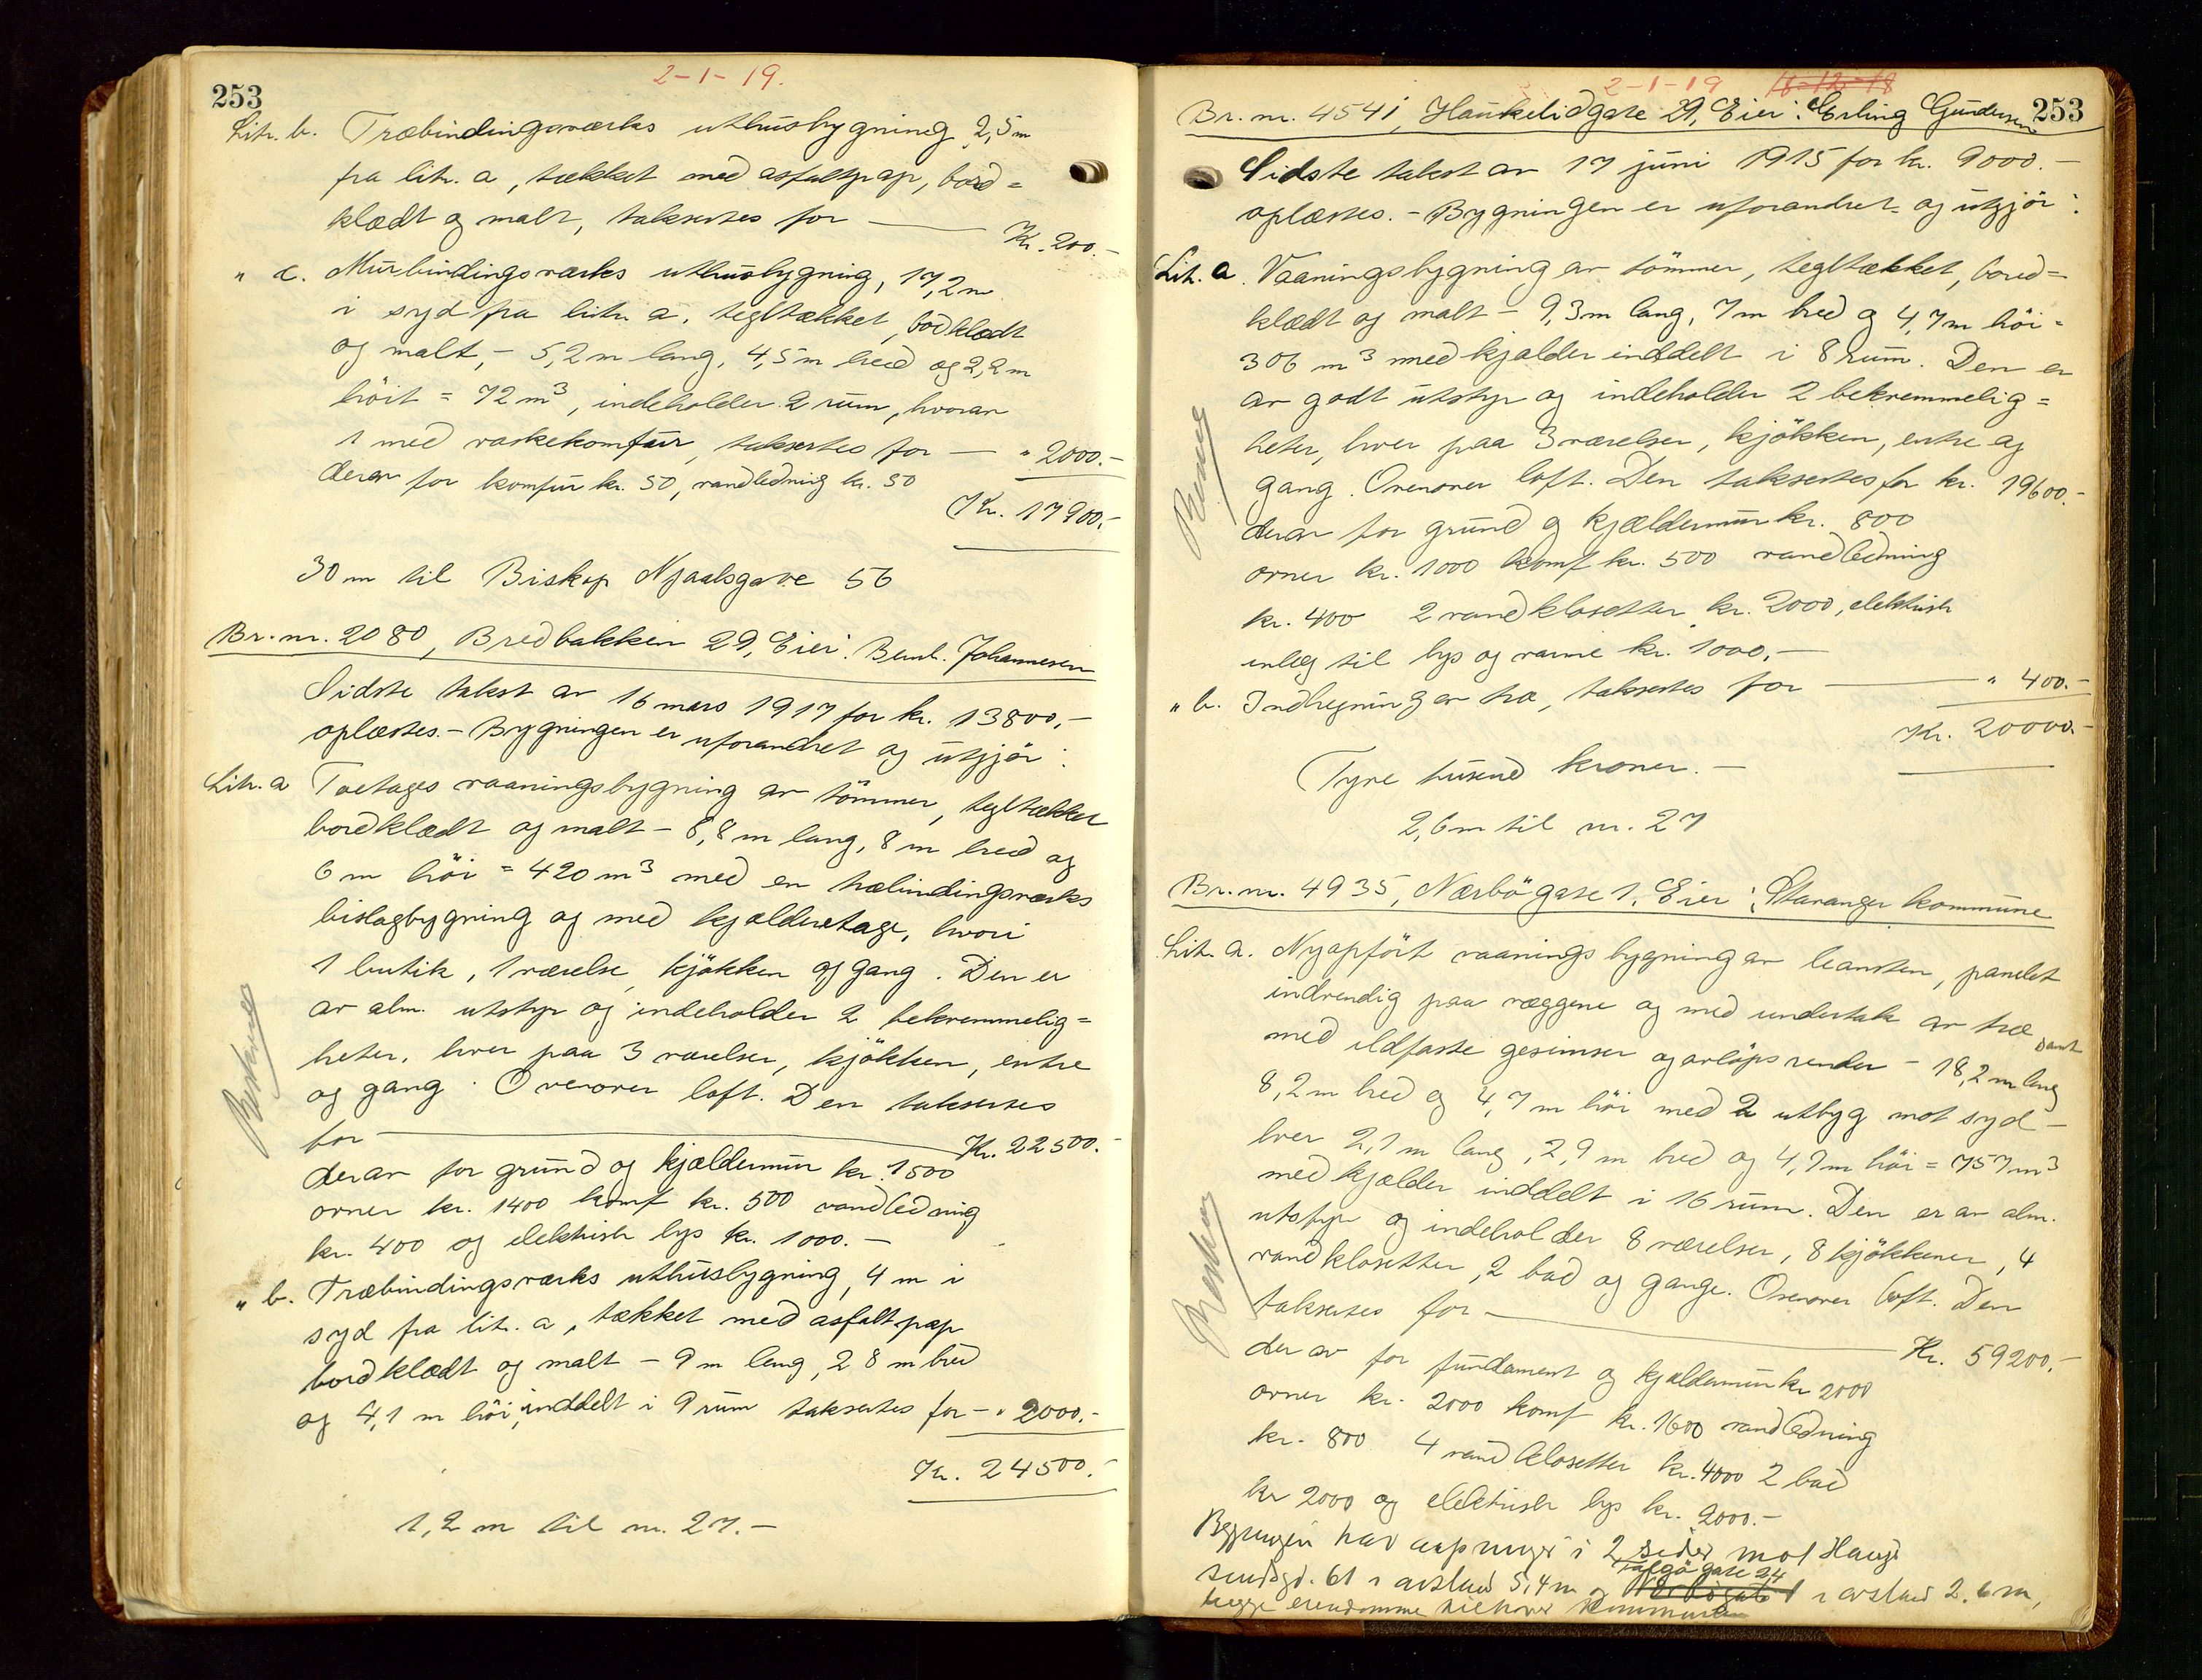 2-1-19.
253
Litr. b. Træbindingsværks uthusbygning 2,5m
fra litr. a, tækket med asfaltpap, bord=
klædt og malt, taksertes for — Kr. 200.-
" c. Murbindingsværks uthusbygning, 17,2m
i syd fra litr. a, tegltækket, bordklædt
og malt, - 5,2 m lang, 4,5m bred og 2,2m
høit = 72 m³, indeholder 2 rum, hvorav
1 med vaskekomfur, taksertes for — " 2000.-
derav for komfur kr. 50, vandledning kr. 50
Kr. 17900.-
30 m til Biskop Njaalsgate 56
Br. nr. 2080, Bredbakken 29, Eier: Bernh. Johannesen
Sidste takst av 16 mars 1917 for kr. 13800,-
oplæstes. - Bygningen er uforandret og utgjör:
Litr. a Toetages vaaningsbygning av tömmer, tegltækket
bordklædt og malt - 8,8 m lang, 8 m bred og
6 m höi = 420 m³ med en træbindingsværks
bislagbygning og med kjælderetage, hvori
1 butik, 1 værelse, kjökken og gang. Den er
av alm. utstyr og indeholder 2 bekvemmelig=
heter, hver paa 3 værelser, kjökken, entre
og gang. Overover loft. Den taksertes
for — Kr. 22500.-
derav for grund og kjældermur kr. 1500
ovner kr. 1400 komf kr. 500 vandledning
kr. 400 og elektrisk lys kr. 1000.-
" b. Træbindingsværks uthusbygning, 4 m i
syd fra lit. a, tækket med asfaltpap
bordklædt og malt - 9 m lang, 2,8 m bred
og 4,1 m höi, inddelt i 9 rum taksertes for - " 2000.-
Kr. 24500.-
1,2 m til nr. 27.-
2-1-19 18-12-18
Br. nr. 4541, Haukelidgate 29, Eier: Erling Gundersen
253
Sidste takst av 17 juni 1915 for kr. 9000.-
oplæstes. - Bygningen er uforandret og utgjör:
Lit. a. Vaaningsbygning av tömmer, tegltækket, bord=
klædt og malt - 9,3m lang, 7m bred og 4,7m höi =
306 m³ med kjælder inddelt i 8 rum. Den er
av godt utstyr og indeholder 2 bekvemmelig=
heter, hver paa 3 værelser, kjökken, entre og
gang. Overover loft. Den taksertes for kr. 19600.-
derav for grund og kjældermur kr. 800
ovner kr. 1000 komf kr. 500 vandledning
kr. 400 2 vandklosetter kr. 2000, elektrisk
inlæg til lys og varme kr. 1000,-
" b. Indhegning av træ, taksertes for — " 400.-
Kr. 20000.-
Tyve tusend kroner.-
2,6m til nr. 27
Br. nr. 4935, Nærbögate 1, Eier: Stavanger kommune
Lit. a. Nyopfört vaaningsbygning av leansten, panelet
indvendig paa væggene og med undertak av træ samt
med ildfaste gesimser og avlöpsrender - 18,2m lang
8,2m bred og 4,7m höi med 2 utbyg mot syd -
hver 2,1m lang, 2,9 m bred og 4,7m höi = 757m³
med kjælder inddelt i 16 rum. Den er av alm.
utstyr og indeholder 8 værelser, 8 kjökkener, 4
vandklosetter, 2 bad og gange. Overover loft. Den
taksertes for — Kr. 59200.-
derav for fundament og kjældermur kr 2000
ovner kr. 2000 komf kr. 1600 vandledning
kr. 800 4 vandklosetter kr. 4000 2 bad
kr 2000 og elektrisk lys kr. 2000.-
Bygningen har aapninger i 2 sider mot Hauge
sundsgt. 61 i avstand 5,4 m og gate 24 i avstand 2.6 m,
begge eiendomme tilhører kommunen